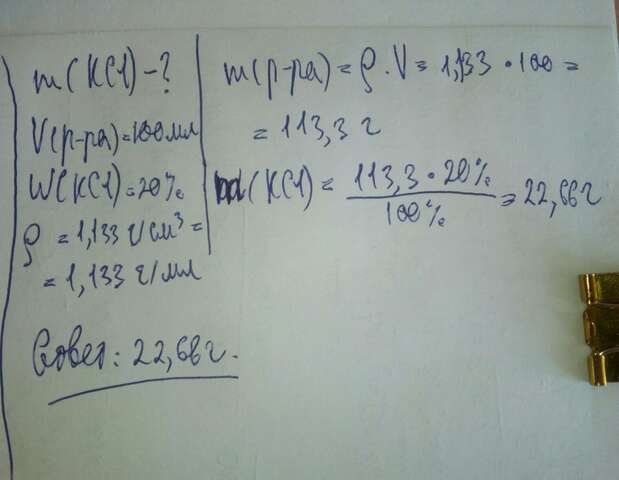 m(KCl) - ?
V(р-ра) = 100 мл
W(KCl) = 20%
ρ = 1,133 г/см³ =
= 1,133 г/мл
m(р-ра) = ρ · V = 1,133 · 100 =
= 113,3 г
m(KCl) = 113,3 · 20% / 100% = 22,66 г
Ответ: 22,66 г.